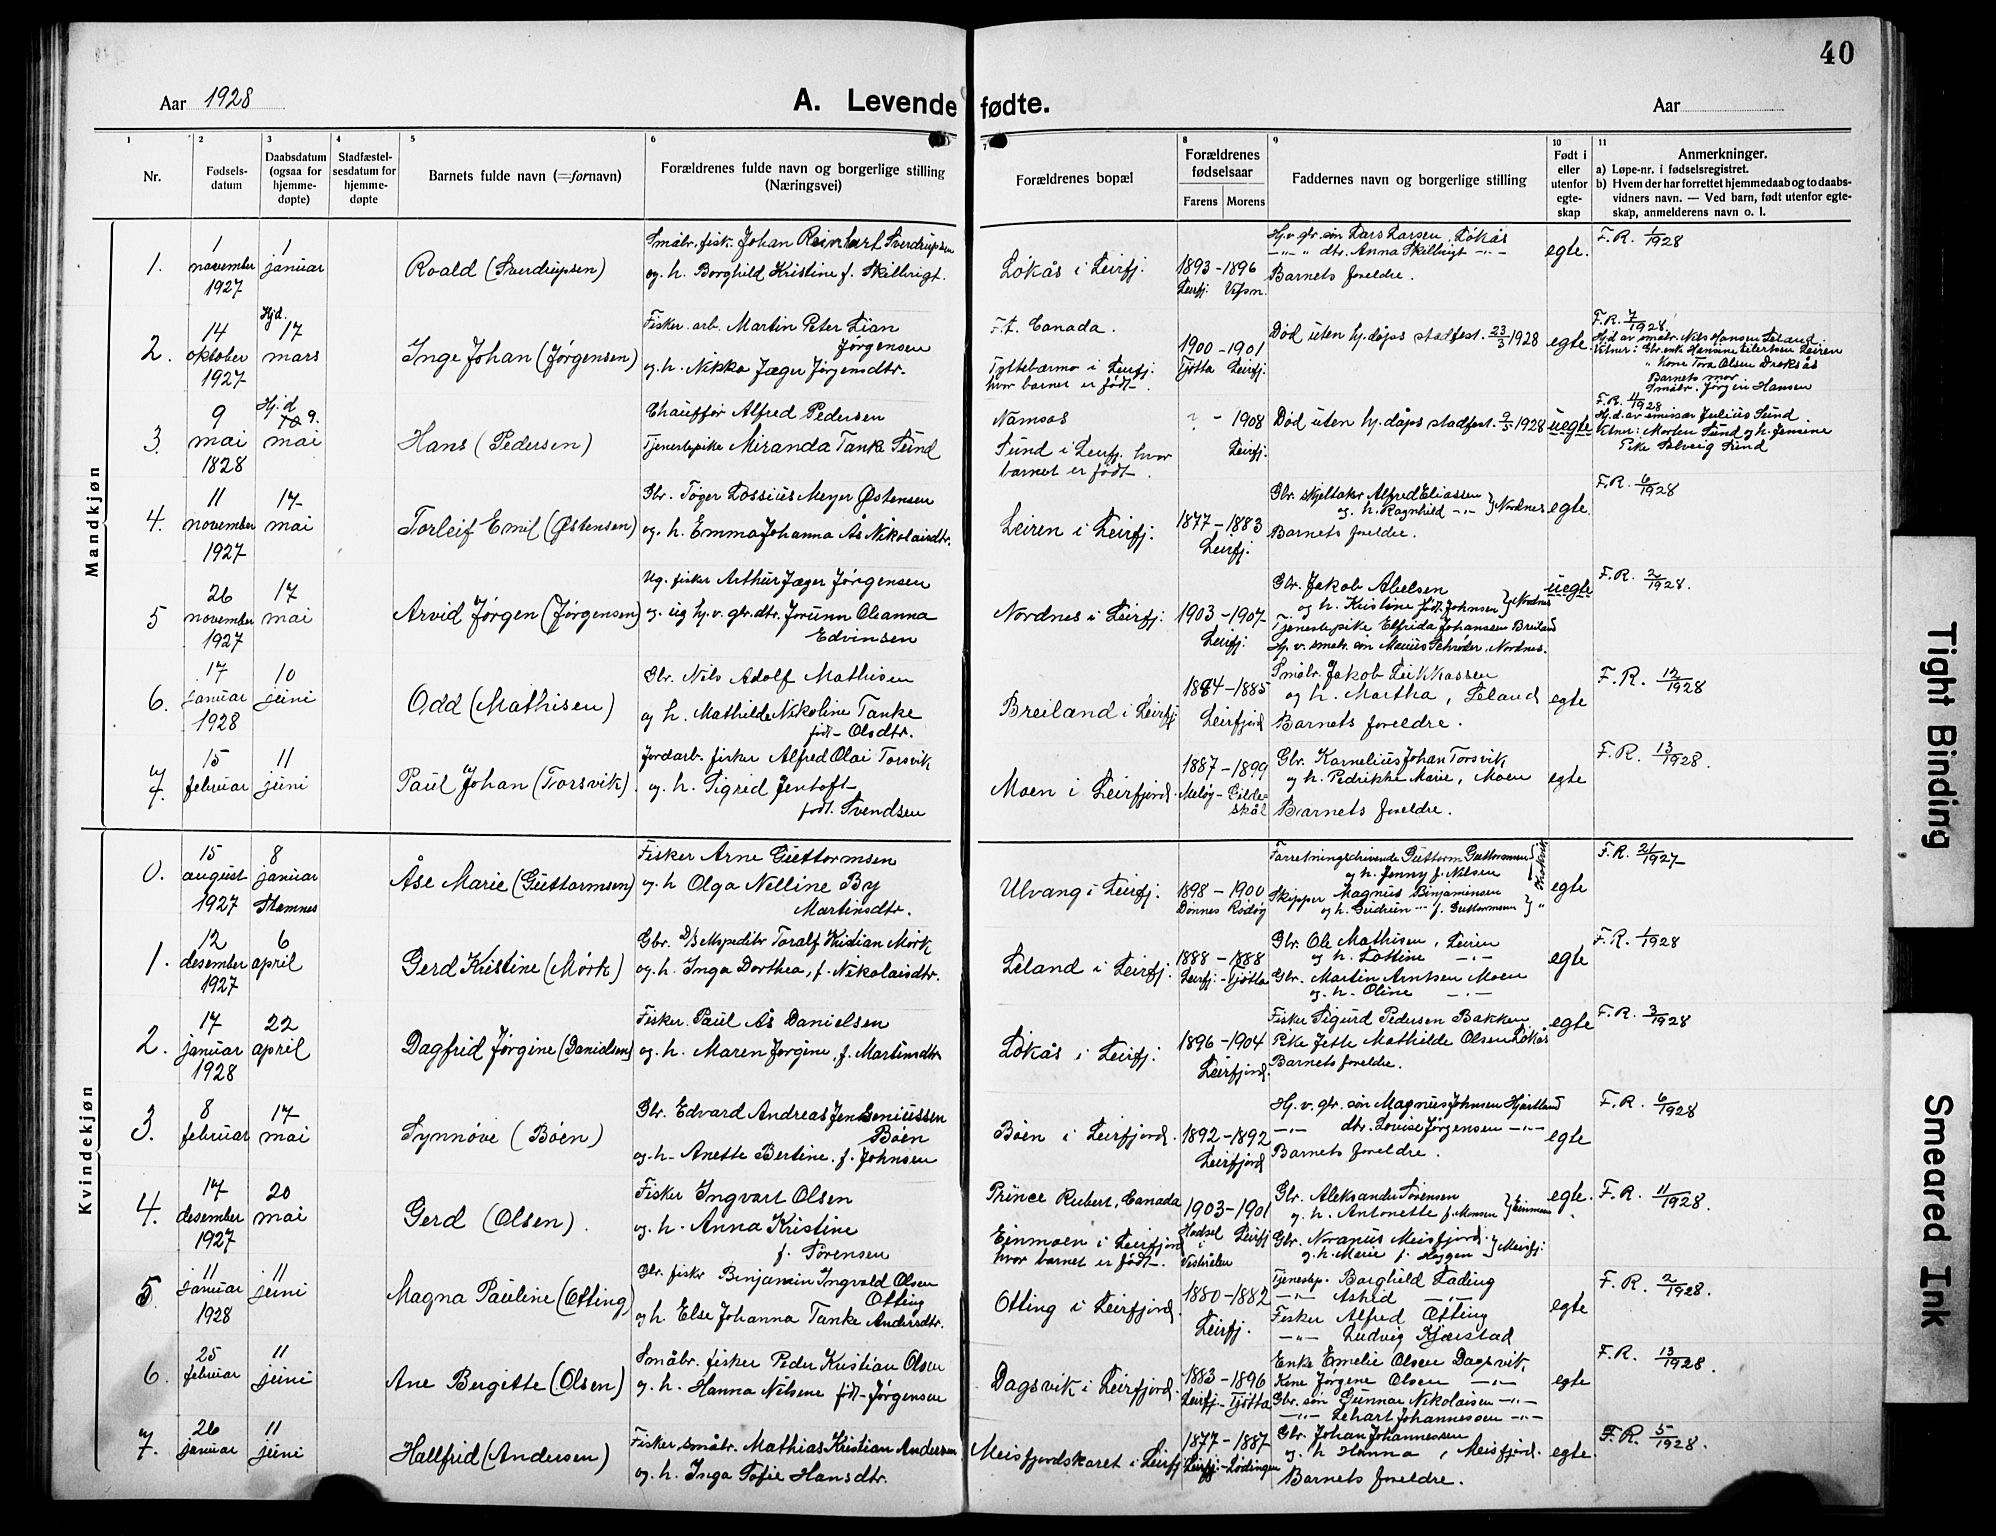 40
Aar 1928
A. Levende fødte.
Aar
1
2
3
4
5
6
7
8
9
10
11
Nr.
Fødsels-
datum
Daabsdatum
(ogsaa for
hjemme-
døpte)
Stadfæstel-
sesdatum for
hjemme-
døpte
Barnets fulde navn (=fornavn)
Forældrenes fulde navn og borgerlige stilling
(Næringsvei)
Forældrenes bopæl
Forældrenes
fødselsaar
Farens Morens
Faddernes navn og borgerlige stilling
Født i
eller
utenfor
egte-
skap
Anmerkninger.
a) Løpe-nr. i fødselsregistret.
b) Hvem der har forrettet hjemmedaab og to daabs-
vidners navn. — Ved barn, født utenfor egte-
skap, anmelderens navn o. l.
Mandkjøn
1.
1 november 1927
1 januar
Roald (Sverdrupsen)
Småbr. fisk. Johan Reinhart Sverdrupsen
og h. Borghild Kristine f. Skilbrigt.
Løkås i Leirfj.
1893 - 1896
Leirfj. Vefsn.
Hj.v. gbr. søn Lars Larsen, Løkås
-"- " dtr. Anna Skilbrigt -"-
Barnets foreldre.
egte.
F.R. 1/1928
2.
14 oktober 1927
Hjd. 17 mars
Inge Johan (Jørgensen)
Fisker. arb. Martin Peter Lian
Jørgensen
og h. Nikka Jæger Jørgensdtr.
F.t. Canada.
Tyttebærmo i Leirfj.
hvor barnet er født.
1900 - 1901
Tjøtta Leirfj.
Død uten hj.dåps stadfest. 23/3 1928
egte.
F.R. 7/1928
Hjd av småbr. Nils Hansen Leland.
Vitner: Gbr. enk. Hansine Eilertsen Leiren
" Kone Tora Olsen Dreksås
Barnets mor
Småbr. Jørgen Hansen
3.
9 mai 1828
Hj.d 9. mai
Hans (Pedersen)
Chauffør Alfred Pedersen
Tjenestepike Miranda Tanke Sund
Namsos
Sund i Leirfj. hvor
barnet er født
? - 1908
Leirfj.
Død uten hj.dåps stadfest. 9/5 1928
uegte
F.R. 4/1928
Hj.d. av emissær Julius Sund.
Vitner: Morten Sund og h. Jensine
Pike Solveig Sund
4.
11 november 1927
17 mai
Torleif Emil (Østensen)
Gbr. Tøger Dossius Meyer Østensen
og h. Emma Johanna Ås Nikolaisdtr.
Leiren i Leirfj.
1877 - 1883
Leirfj.
Gbr. skjeltakr Alfred Eliassen
og h. Ragnhild -"- } Nordnes
Barnets foreldre.
egte.
F.R. 6/1928
5
26 november 1927
17 mai
Arvid Jørgen (Jørgensen)
Ug. fisker Arthur Jæger Jørgensen
og ug hj.v. gbr.dtr. Jorunn Oleanna
Edvinsen
Nordnes i Leirfj.
1903 - 1907
Leirfj.
Gbr. Jakob Abelsen
og h. Kristine født Johnsen } Nordnes
Tjenestepike Elfrida Johansen Breiland
Hj. v. småbr. søn Marius Schrøder, Nordnes.
uegte
F.R. 2/1928.
6.
17 januar 1928
10 juni
Odd (Mathisen)
Gbr. Nils Adolf Mathisen
og h. Mathilde Nikoline Tanke
født Olsdtr.
Breiland i Leirfj
1884 - 1885
Leirfjord
Småbr. Jakob Leikkassen
og h. Martha, Leland
Barnets foreldre.
egte
F.R. 12/1928
7.
15 februar
11 juni
Paul Johan (Torsvik)
Jordarb. fisker Alfred Olai Torsvik
og h. Sigrid Jentoft
født Svendsen
Moen i Leirfjord.
1887 - 1899
Meløy - Gilde-
skål
Gbr. Kornelius Johan Torsvik
og h. Pedrikke Marie, Moen
Barnets foreldre.
egte
F.R. 13/1928.
Kvindekjøn
0.
15 august 1927
8 januar Stamnes
Åse Marie (Guttormsen)
Fisker Arne Guttormsen
og h Olga Nelline By
Martinsdtr.
Ulvang i Leirfj.
1898 - 1900
Dønnes Rødøy
Forretningsdrivende Guttorm Guttormsen
og h. Jenny f. Nilsen
Skipper Magnus Binjaminsen
og h. Gudrun -"- f. Guttormsen } "
egte
F.R. 21/1927
1.
12 desember 1927
6 april
Gerd Kristine (Mörk)
Gbr. D/S Expeditr Toralf Kristian Mörk
og h. Inga Dorthea, f. Nikolaisdtr.
Leland i Leirfj.
1888 - 1888
Leirfj. - Tjøtta
Gbr. Ole Mathisen, Leiren
og h. Lottine -"-
Gbr. Martin Arntsen Moen
og h. Oline -"-
egte
F.R. 1/1928
2.
17 januar 1928
22 april
Dagfrid Jørgine (Danielsen)
Fisker. Paul Ås Danielsen
og h. Maren Jørgine, f. Martinsdtr
Løkås i Leirfj.
1896 - 1904
Leirfjord.
Fisker Sigurd Pedersen Bakken
Pike Jette Mathilde Olsen Løkås
Barnets foreldre.
egte
F.R. 3/1928
3.
8 februar
17 mai
Synnøve (Böen)
Gbr. Edvard Andreas Jenseniussen
Böen
og h- Anette Bertine. f. Johnsen
Böen i Leirfjord.
1892 - 1892
Leirfjord
Hj.v. gbr. søn Magnus Johnsen Hjartland
-"- dtr. Lovise Jørgensen -"-
Barnets foreldre.
egte
F.R. 6/1928
4.
17 desember 1927
20 mai
Gerd (Olsen).
Fisker Ingvart Olsen
og h. Anna Kristine
f. Sørensen
Prince Rubert, Canada
Einmoen i Leirfjord
hvor barnet er født.
1903 - 1901
Hadsel Leirfj
i
Vesterålen
Gbr. Aleksander Sørensen
og h. Antonette f. Monsen } Einmoen
Gbr. Noranus Meisfjord.
og h. Marie f. Heggen } Meisfj.
egte.
F.R. 11/1928.
5.
11 januar 1928
11 juni
Magna Pauline (Otting)
Gbr. fiskr Benjamin Ingvald Olsen
Otting
og h Else Johanna Tanke Andersdtr.
Otting i Leirfjord.
1880 - 1882
Leirfj.
Tjenestep. Borghild Fading
-"- Astrid -"-
Fisker Alfred Otting
-"- Ludvig Kjærstad
egte
F.R. 2/1928.
6.
25 februar
11 juni
Ane Bergitte (Olsen)
Småbr. fisker Peder Kristian Olsen
og h. Hanna Nilsine født Jørgensen
Dagsvik i Leirfjord.
1883 - 1896
Leirfj. - Tjøtta
Enke Emelie Olsen Dagsvik
Kone Jørgine Olsen -"-
Gbr. søn Gunnar Nikolaisen -"-
-"- Lehart Johannessen -"-
egte
F.R. 13/1928.
7.
26 januar
11 juni
Hallfrid (Andersen)
Fisker småbr. Mathias Kristian Andersen
og h. Inga Sofie Hansdtr.
Meisfjordskaret i Leirfj
1877 - 1887
Leirfj. - Lødingen
Gbr. Johan Johannessen
og h Hanna, Meisfjord.
Barnets foreldre.
egte
F.R. 5/1928.
Tight Binding
Smeared Ink